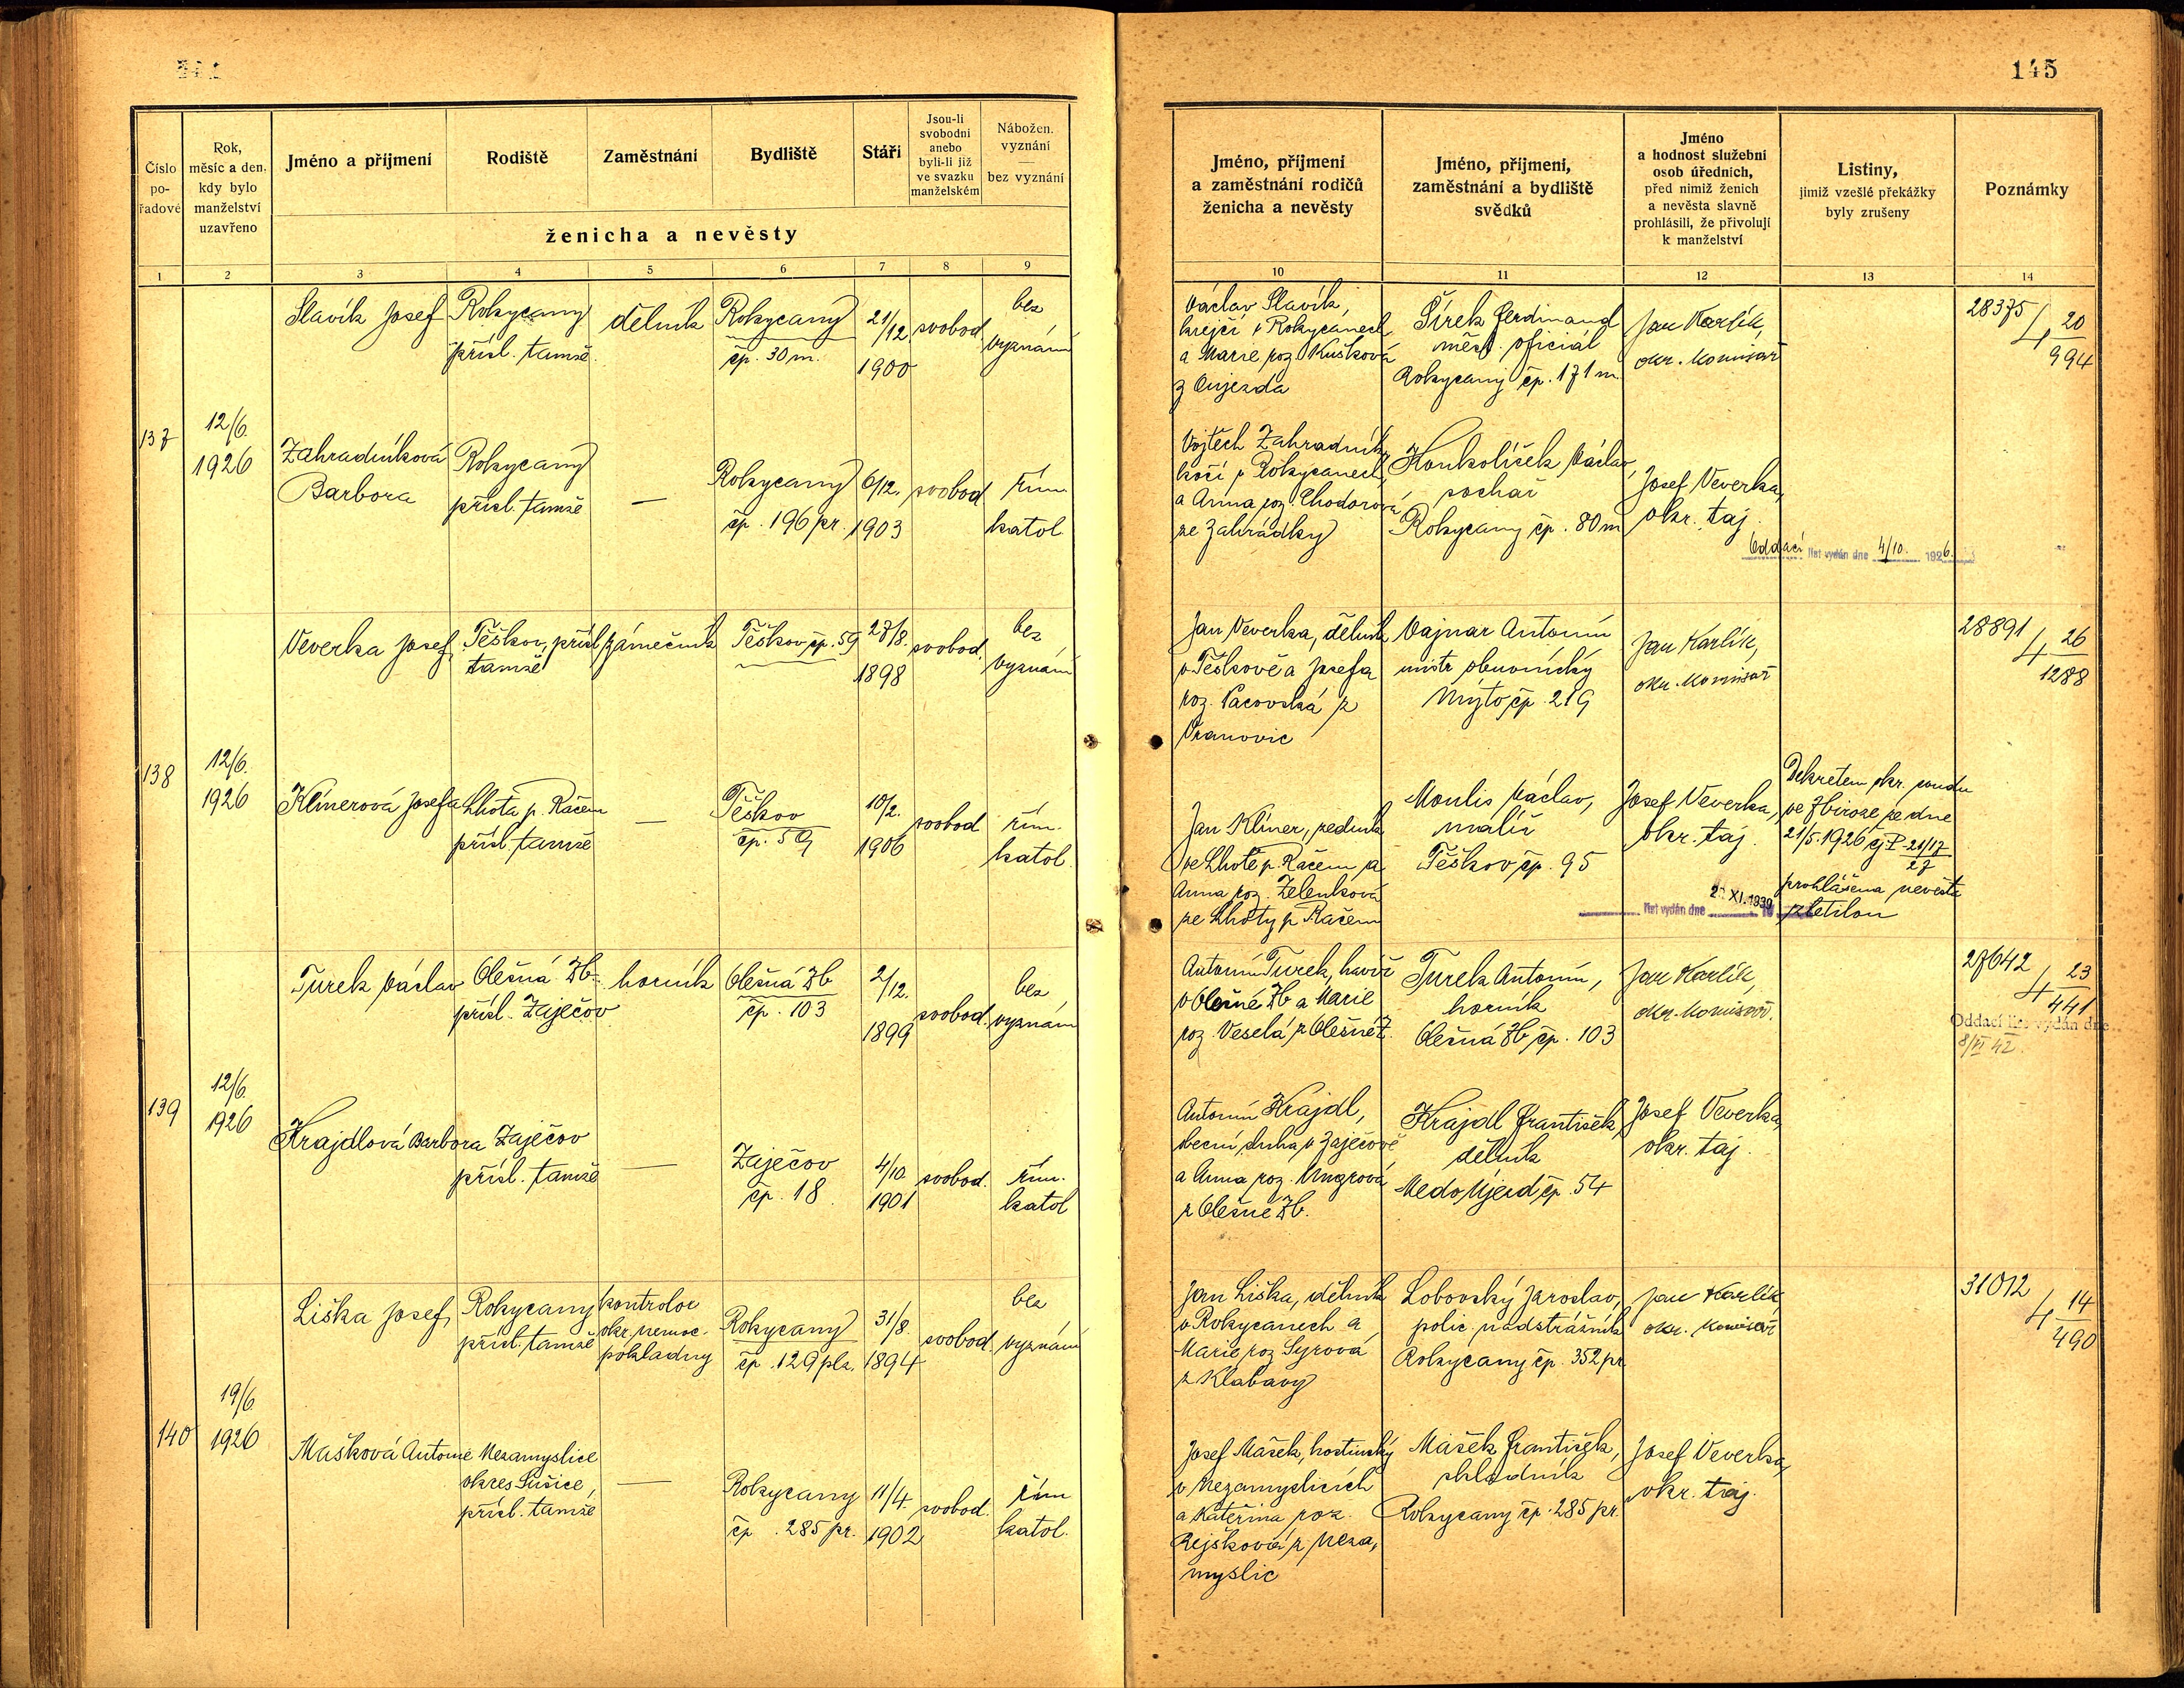 145
Číslo pořadové
Rok, měsíc a den, kdy bylo manželství uzavřeno
Jméno a příjmení
Rodiště
Zaměstnání
Bydliště
Stáří
Jsou-li svobodni anebo byli-li již ve svazku manželském
Nábožen. vyznání — bez vyznání
ženicha a nevěsty
1 2 3 4 5 6 7 8 9
Jméno, příjmení a zaměstnání rodičů ženicha a nevěsty
Jméno, příjmení, zaměstnání a bydliště svědků
Jméno a hodnost služební osob úředních, před nimiž ženich a nevěsta slavně prohlásili, že přivolují k manželství
Listiny, jimiž vzešlé překážky byly zrušeny
Poznámky
10 11 12 13 14
137
12/6. 1926
Slavík Josef
Rokycany
přísl. tamže
dělník
Rokycany
čp. 30 m.
21/12. 1900
svobod
bez vyznání
Václav Slavík,
krejčí v Rokycanech
a Marie roz. Kušková
z Oujezda
Šírek Ferdinand
měst. oficiál
Rokycany čp. 171 m.
Jan Karlík,
okr. komisař
28375/4 20/994
Zahradníková
Barbora
Rokycany
přísl. tamže
—
Rokycany
čp. 196 pr.
6/12. 1903
svobod
řím. katol
Vojtěch Zahradník,
kočí v Rokycanech,
a Anna roz. Chodorová
ze Zahrádky
Konkolíček Václav,
sochař
Rokycany čp. 80 m
Josef Veverka,
okr. taj.
Oddací list vydán dne 4/10. 1926.
138
12/6. 1926
Veverka Josef
Těškov, přísl
tamže
zámečník
Těškov, čp. 59
27/8. 1898
svobod.
bez vyznání
Jan Veverka, dělník
v Těškově a Josefa
roz. Pacovská z
Vranovic
Vajnar Antonín
mistr obuvnický
Mýto, čp. 219
Jan Karlík,
okr. komisař
28891/4 26/1288
Klinerová Josefa
Lhota p. Račem
přísl. tamže
—
Těškov
čp. 59
10/2. 1906
svobod
řím. katol.
Jan Klíner, zedník
ve Lhotě p. Račem a
Anna roz. Zelenková
ze Lhoty p. Račem
Moulis Václav,
malíř
Těškov, čp. 95
Josef Veverka,
okr. taj.
Dekretem okr. soudu
ve Zbiroze ze dne
21/5. 1926 čj P 21/17
27
prohlášena nevěsta
zletilou
list vydán dne XI. 1939
139
12/6. 1926
Turek Václav
Olešná Zb.
přísl. Zaječov
horník
Olešná Zb
čp. 103
2/12. 1899
svobod.
bez vyznání
Antonín Turek, havíř
v Olešné Zb a Marie
roz. Veselá z Olešné Z.
Turek Antonín,
horník
Olešná Zb, čp. 103
Jan Karlík,
okr. komisař.
27642/4 23/441
Oddací list vydán dne
8/VI 42.
Krajdlová Barbora
Zaječov
přísl. tamže
—
Zaječov
čp. 18
4/10. 1901
svobod.
řím. katol
Antonín Krajdl,
obecní sluha v Zaječově
a Anna roz. Ungrová
z Olešné Zb.
Krajdl František,
dělník
Medo Újezd, čp. 54
Josef Veverka,
okr. taj.
140
19/6. 1926
Liška Josef
Rokycany
přísl. tamže
kontrolor
okr. nemoc.
pokladny
Rokycany
čp. 129 plz.
31/8. 1894
svobod.
bez vyznání
Jan Liška, dělník
v Rokycanech a
Marie roz. Syrová
z Klabavy
Lobovský Jaroslav,
polic. nadstrážník
Rokycany čp. 352 pr.
Jan Karlík
okr. komisař
31012/4 14/490
Mašková Antonie
Nezamyslice
okres Sušice,
přísl. tamže
—
Rokycany
čp. 285 pr.
11/4. 1902
svobod.
řím katol.
Josef Mašek, hostinský
v Nezamyslicích
a Kateřina roz.
Rejšková z Neza,
myslic
Mašek František,
skladník
Rokycany čp. 285 pr.
Josef Veverka,
okr. taj.